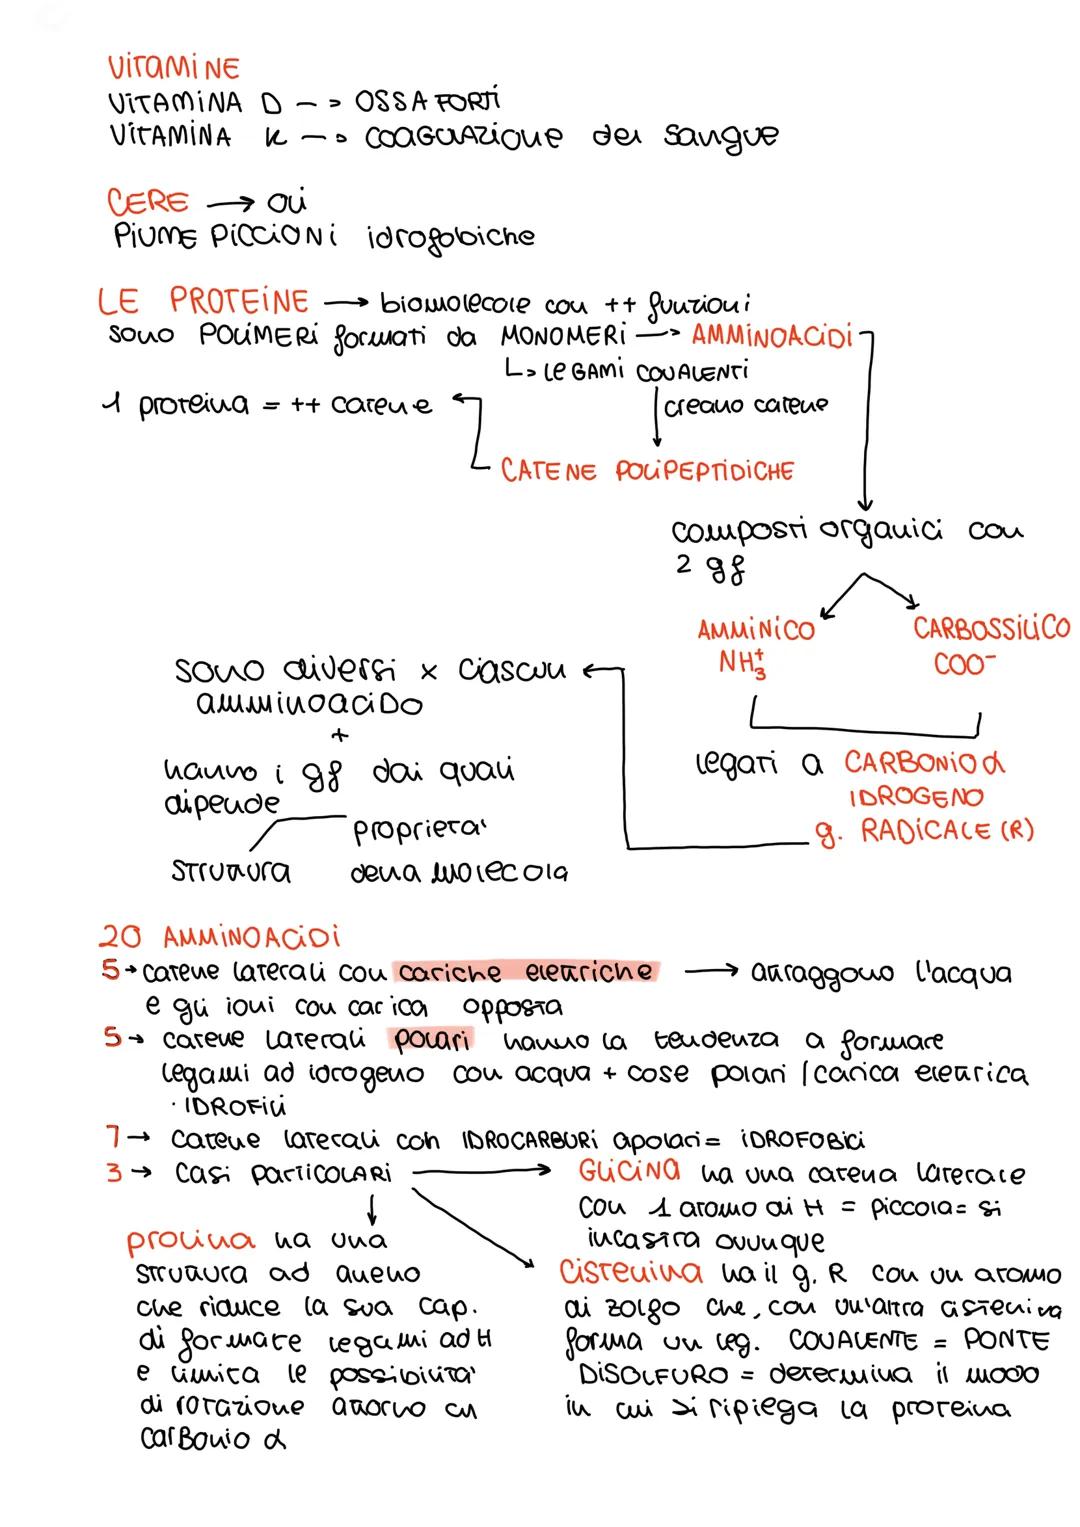 VITAMINE
VITAMINA D --> OSSA FORTI
VITAMINA K --> COAGULAZIONE del sangue
CERE → oli
PIUME PICCIONI idrofobiche
LE PROTEINE → biomolecole con ++ funzioni
sono POLIMERI formati da MONOMERI → AMMINOACIDI
↳ LEGAMI COVALENTI
1 proteina = ++ catene
creano catene
CATENE POLIPEPTIDICHE
composti organici con
2 gf
AMMINICO
NH₃⁺
CARBOSSILICO
COO⁻
sono diversi x ciascun
amminoacido
+
hanno i gf dai quali
dipende
proprietà
struttura
della molecola
legati a CARBONIO α
IDROGENO
g. RADICALE (R)
20 AMMINOACIDI
5→ catene laterali con cariche elettriche → attraggono l'acqua
e gli ioni con carica opposta
5→ catene laterali polari hanno la tendenza a formare
legami ad idrogeno con acqua + cose polari / carica elettrica
· IDROFILI
7→ catene laterali con IDROCARBURI apolari = IDROFOBICI
3→ CASI PARTICOLARI
GLICINA ha una catena laterale
con 1 atomo di H = piccola = si
incastra ovunque
prolina ha una
struttura ad anello
che riduce la sua cap.
di formare legami ad H
e limita le possibilità
di rotazione attorno al
carbonio α
Cisteina ha il g. R con un atomo
di zolfo che, con un'altra cisteina
forma un leg. COVALENTE = PONTE
DISOLFURO = determina il modo
in cui si ripiega la proteina